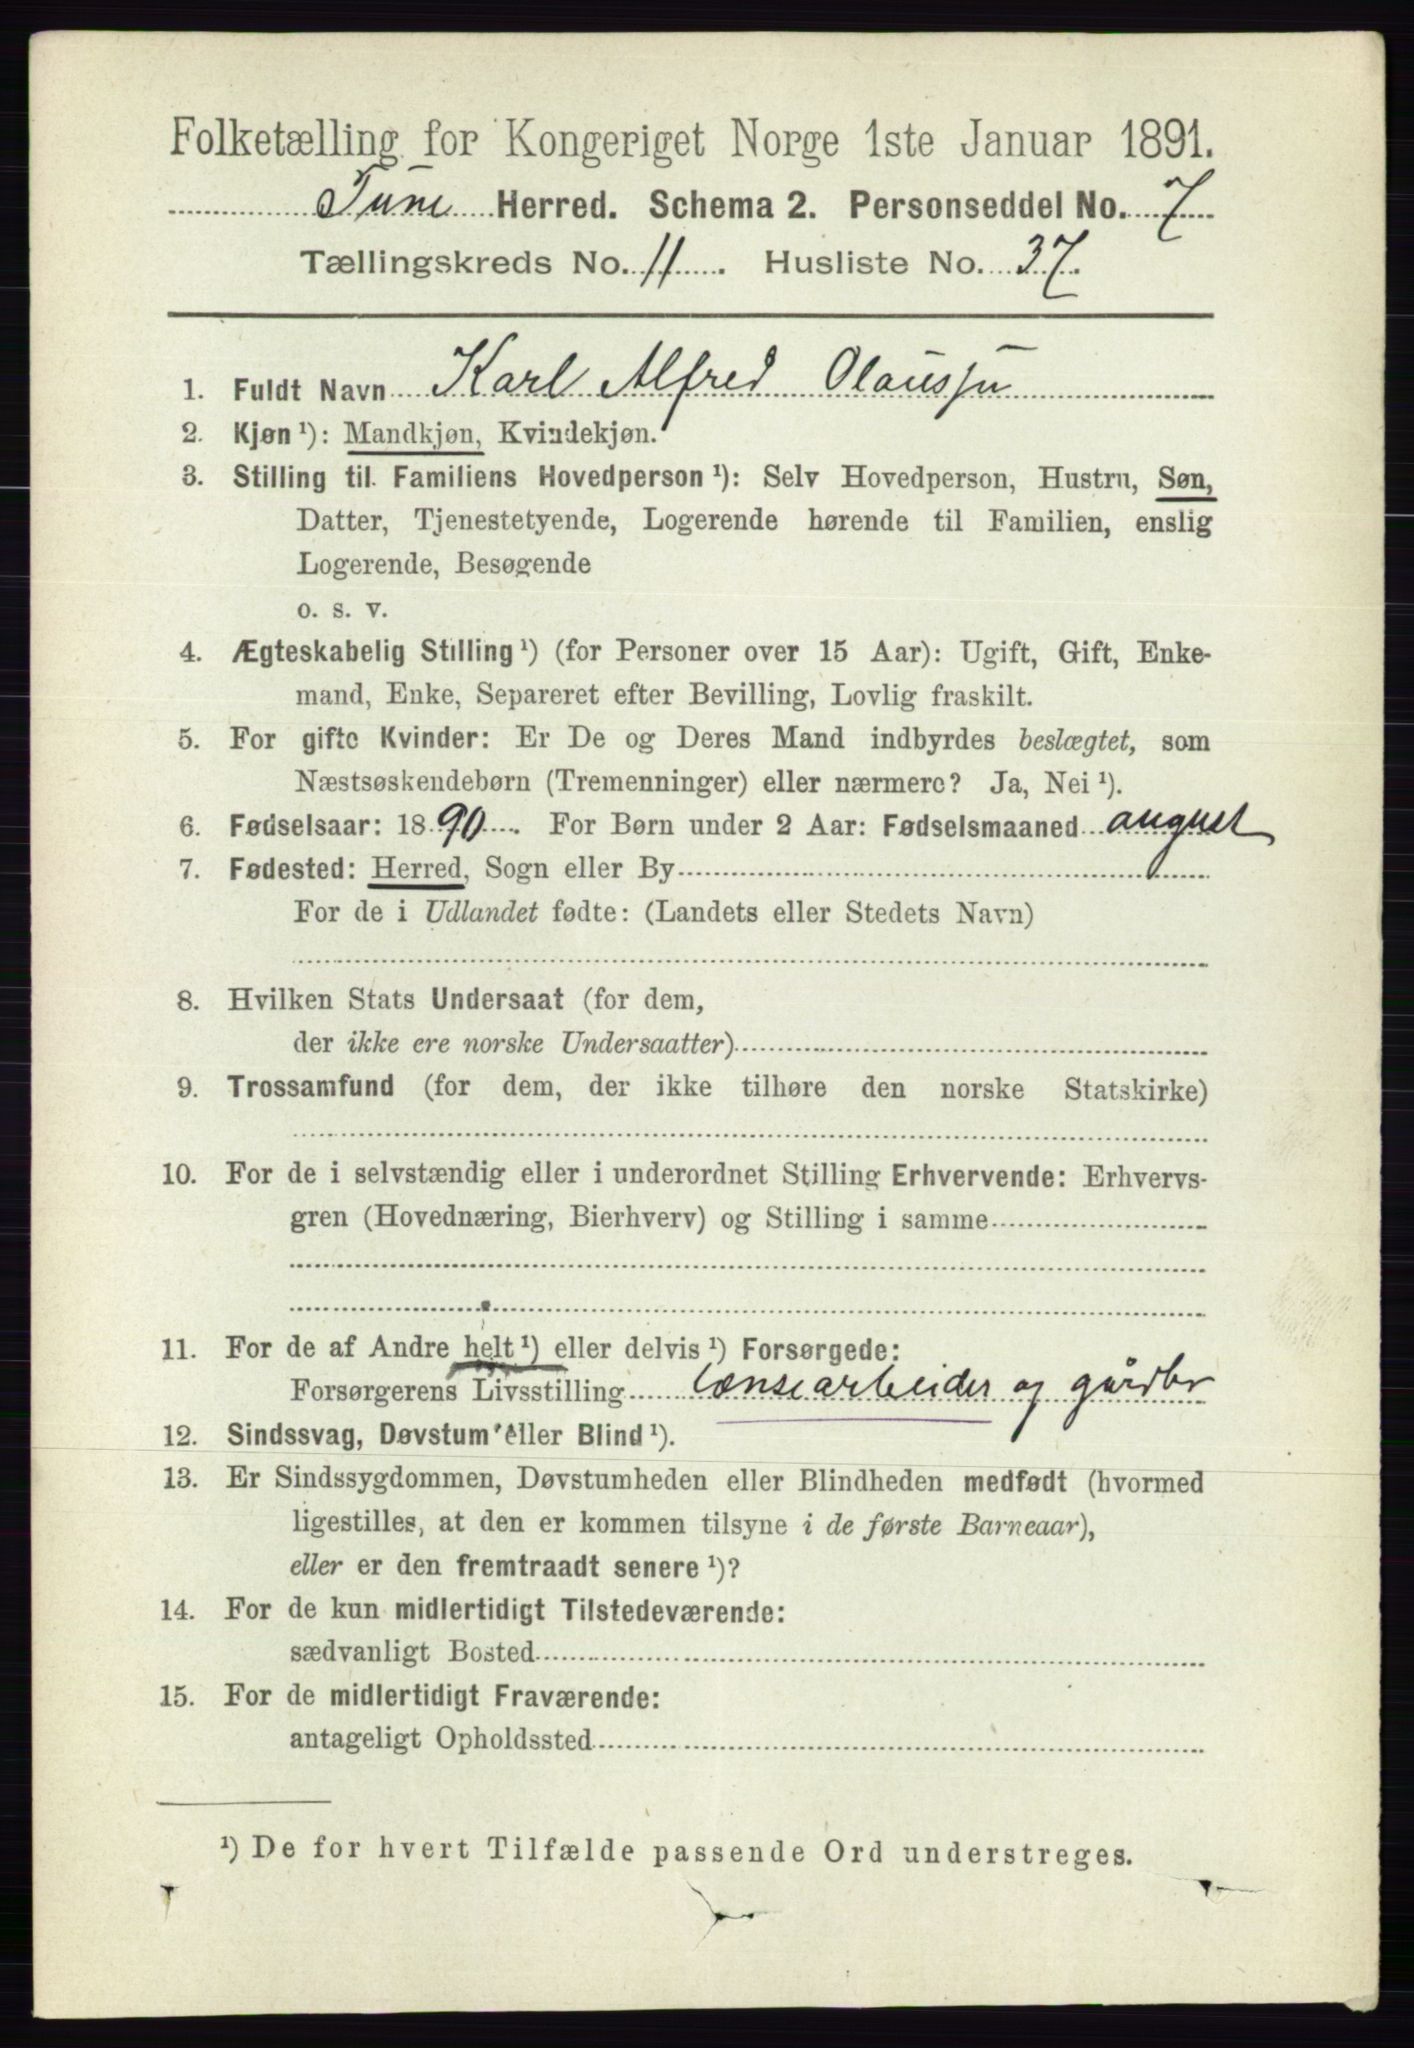 Folketælling for Kongeriget Norge 1ste Januar 1891.
Tune Herred. Schema 2. Personseddel No. 7
Tællingskreds No. 11. Husliste No. 37.
1. Fuldt Navn Karl Alfred Olaussen
2. Kjøn ¹): Mandkjøn, Kvindekjøn.
3. Stilling til Familiens Hovedperson ¹): Selv Hovedperson, Hustru, Søn,
Datter, Tjenestetyende, Logerende hørende til Familien, enslig
Logerende, Besøgende
o. s. v.
4. Ægteskabelig Stilling ¹) (for Personer over 15 Aar): Ugift, Gift, Enke-
mand, Enke, Separeret efter Bevilling, Lovlig fraskilt.
5. For gifte Kvinder: Er De og Deres Mand indbyrdes beslægtet, som
Næstsøskendebørn (Tremenninger) eller nærmere? Ja, Nei ¹).
6. Fødselsaar: 1890. For Børn under 2 Aar: Fødselsmaaned august
7. Fødested: Herred, Sogn eller By
For de i Udlandet fødte: (Landets eller Stedets Navn)
8. Hvilken Stats Undersaat (for dem,
der ikke ere norske Undersaatter)
9. Trossamfund (for dem, der ikke tilhøre den norske Statskirke)
10. For de i selvstændig eller i underordnet Stilling Erhvervende: Erhvervs-
gren (Hovednæring, Bierhverv) og Stilling i samme
11. For de af Andre helt ¹) eller delvis ¹) Forsørgede:
Forsørgerens Livsstilling lænsearbeider og gårdbr
12. Sindssvag, Døvstum eller Blind ¹).
13. Er Sindssygdommen, Døvstumheden eller Blindheden medfødt (hvormed
ligestilles, at den er kommen tilsyne i de første Barneaar),
eller er den fremtraadt senere ¹)?
14. For de kun midlertidigt Tilstedeværende:
sædvanligt Bosted
15. For de midlertidigt Fraværende:
antageligt Opholdssted
¹) De for hvert Tilfælde passende Ord understreges.